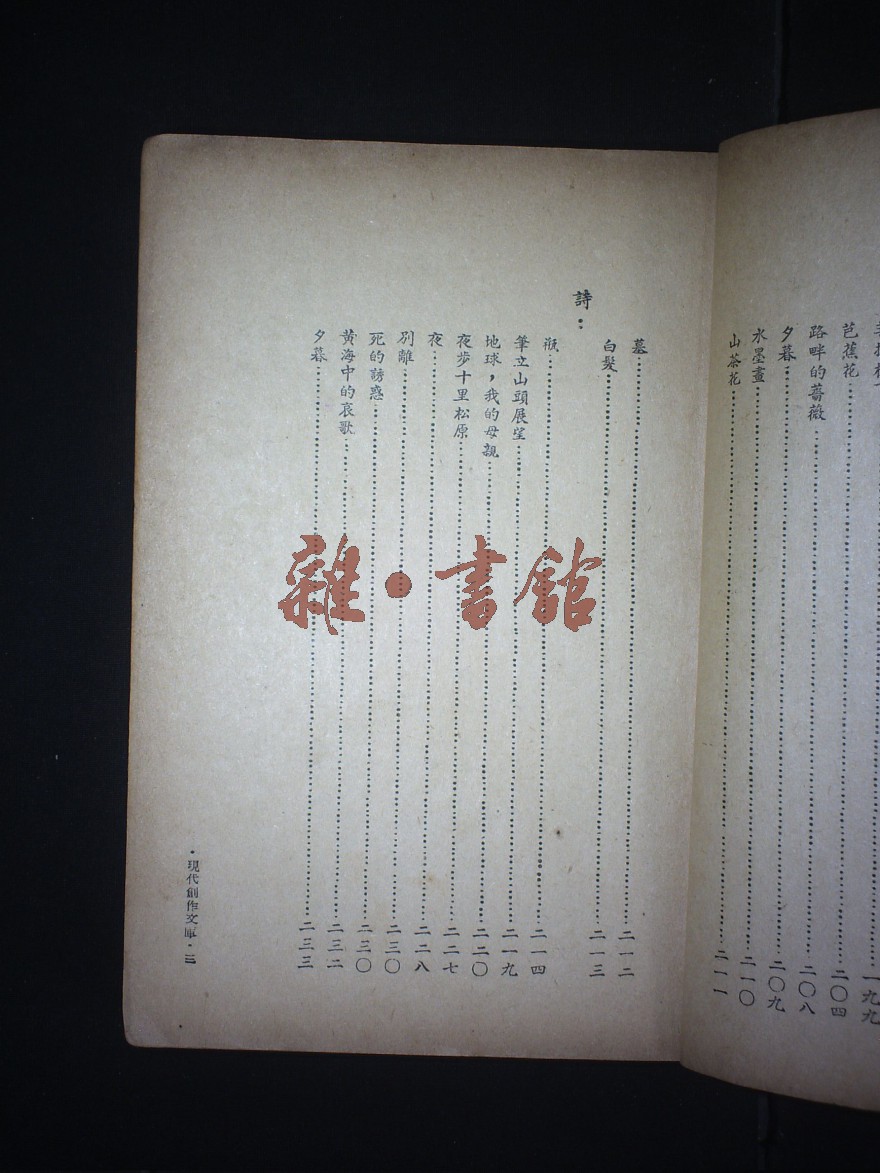 一九九
芭蕉花……二〇四
路畔的薔薇……二〇八
夕暮……二〇九
水墨畫……二一〇
山茶花……二一一
墓……二一二
白髮……二一三
詩：
瓶……二一四
筆立山頭展望……二一九
地球，我的母親……二二〇
夜步十里松原……二二七
夜……二二八
別離……二三〇
死的誘惑……二三〇
黃海中的哀歌……二三二
夕暮……二三三
·現代創作文庫·三
雜·書館